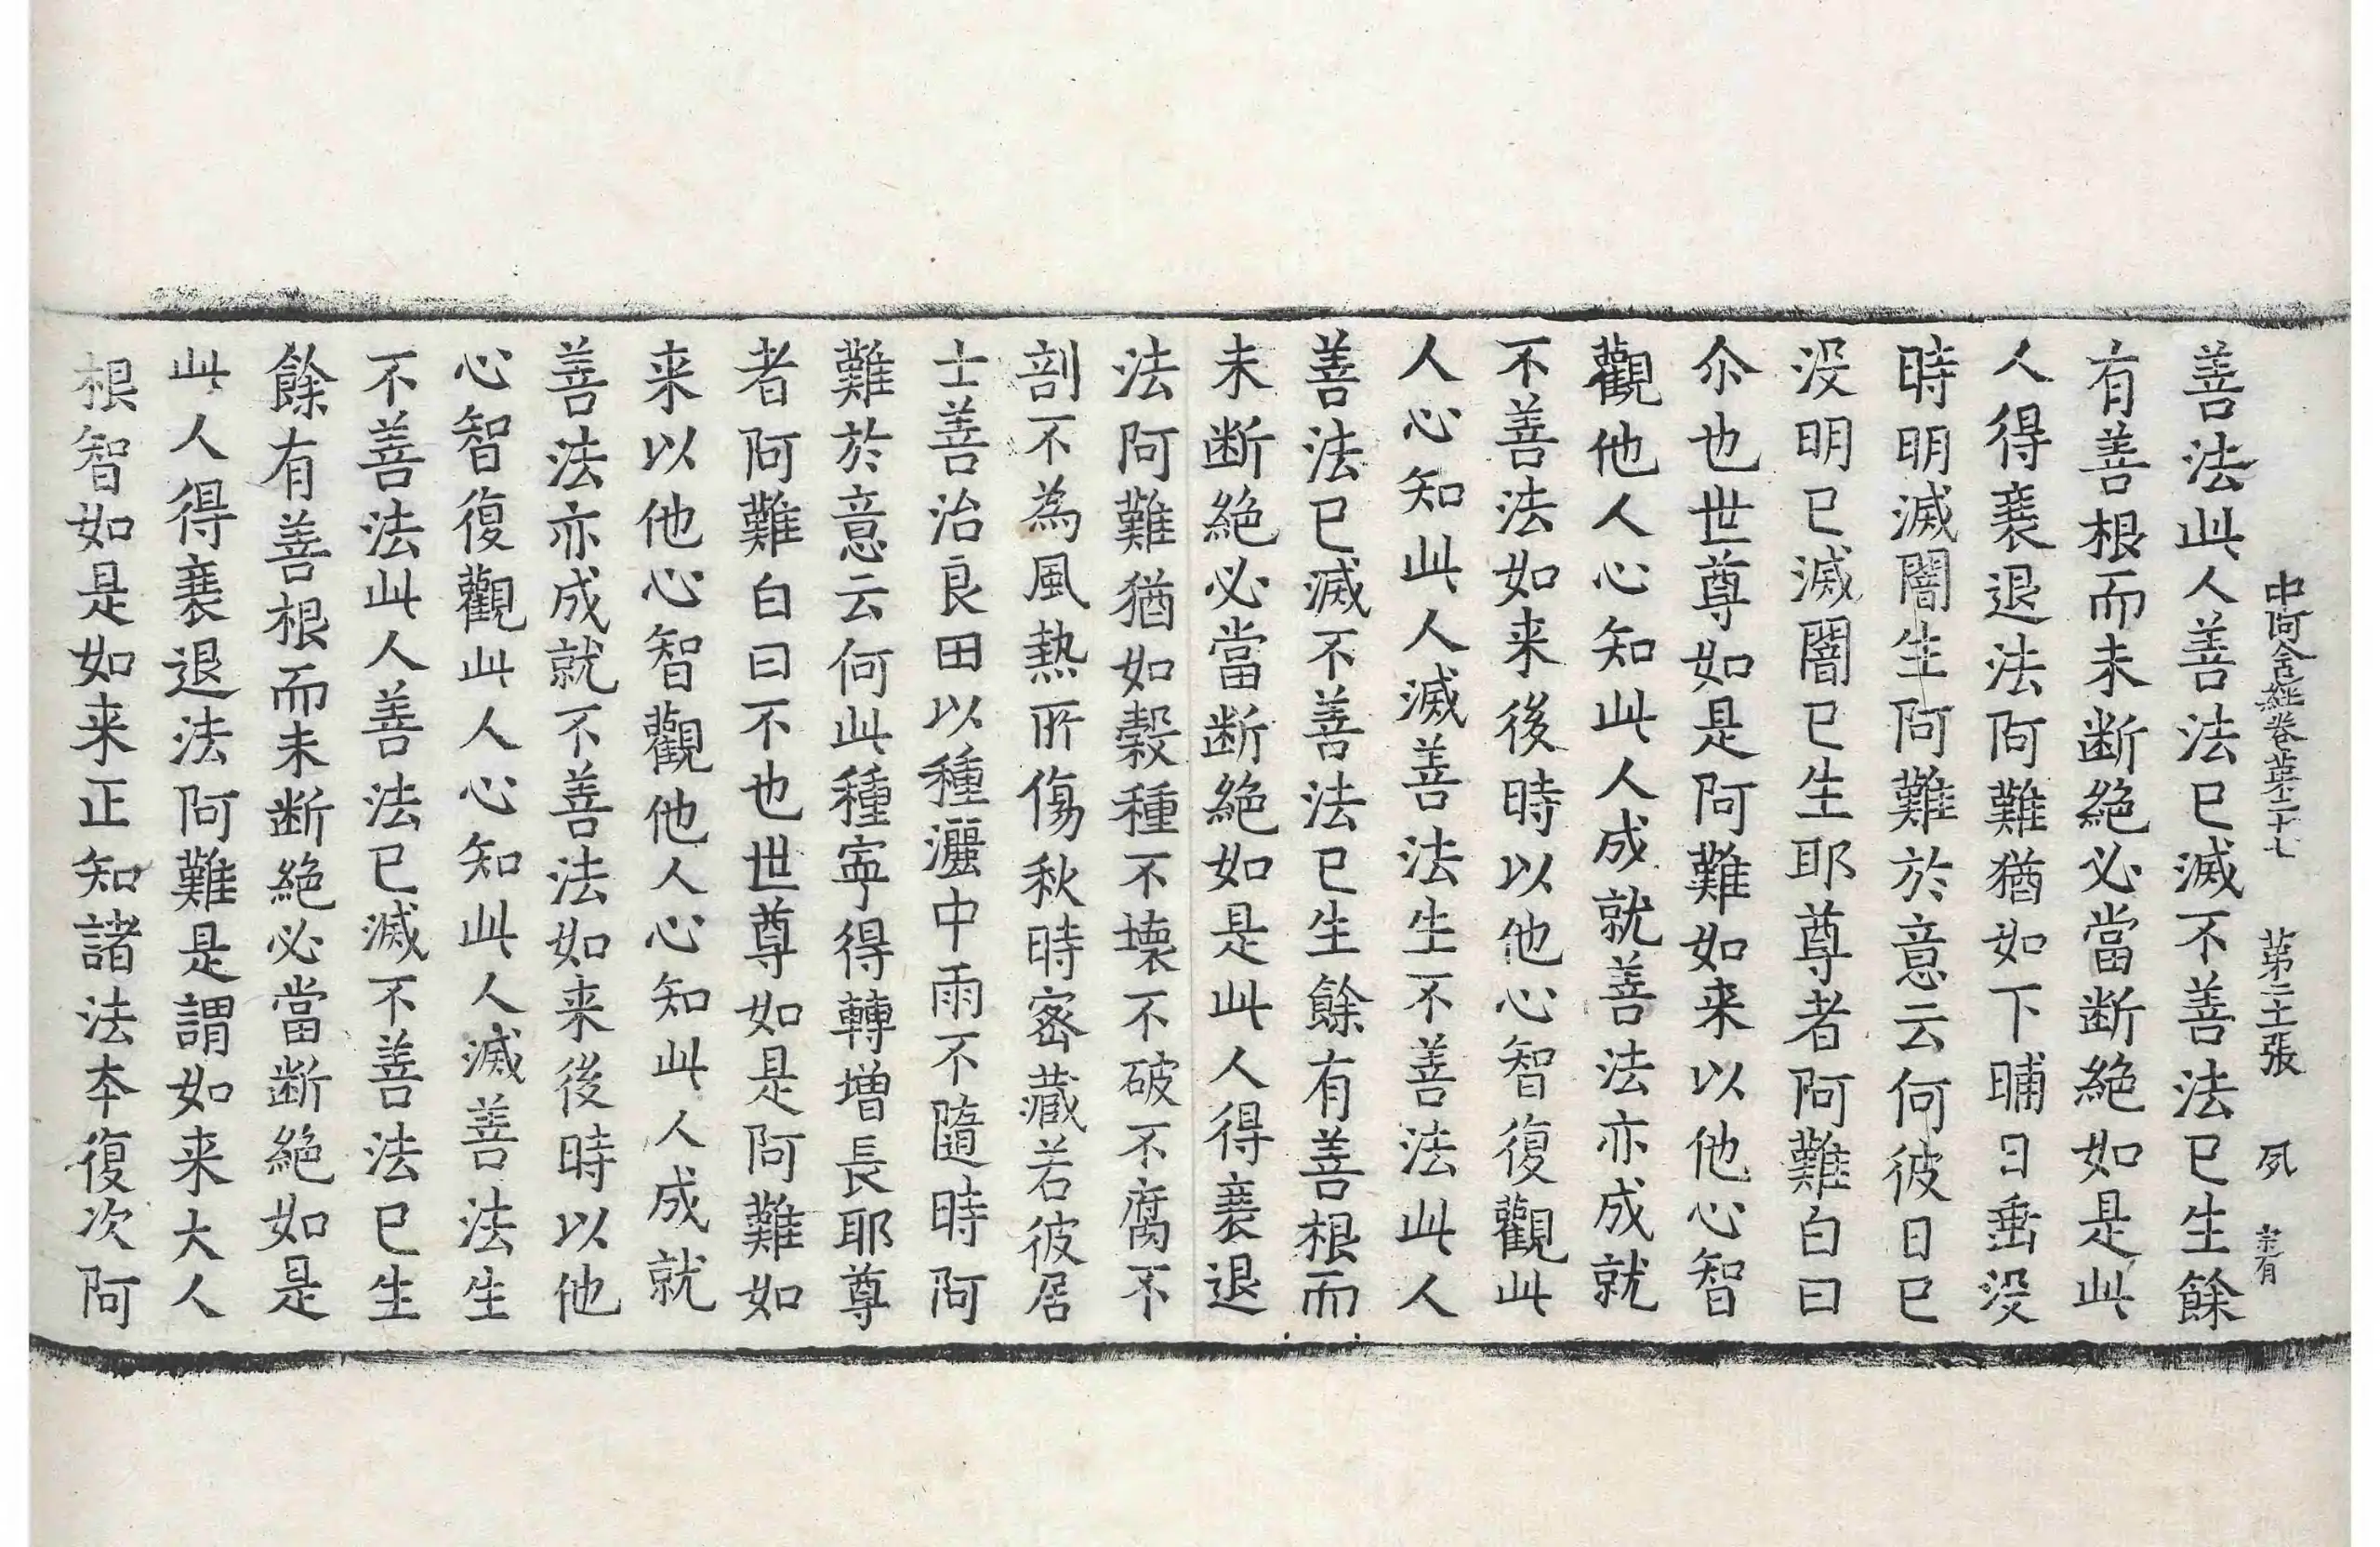 中阿含經卷第二十七　第二十張　夙　宗有
善法此人善法已滅不善法已生餘
有善根而未断絶必當断絶如是此
人得衰退法阿難猶如下晡日垂没
時明滅闇生阿難於意云何彼日已
没明已滅闇已生耶尊者阿難白曰
尒也世尊如是阿難如来以他心智
觀他人心知此人成就善法亦成就
不善法如来後時以他心智復觀此
人心知此人滅善法生不善法此人
善法已滅不善法已生餘有善根而
未断絶必當断絶如是此人得衰退
法阿難猶如穀種不壊不破不腐不
剖不為風熱所傷秋時密藏若彼居
士善治良田以種灑中雨不隨時阿
難於意云何此種寜得轉增長耶尊
者阿難白曰不也世尊如是阿難如
来以他心智觀他人心知此人成就
善法亦成就不善法如来後時以他
心智復觀此人心知此人滅善法生
不善法此人善法已滅不善法已生
餘有善根而未断絶必當断絶如是
此人得衰退法阿難是謂如来大人
根智如是如来正知諸法夲復次阿